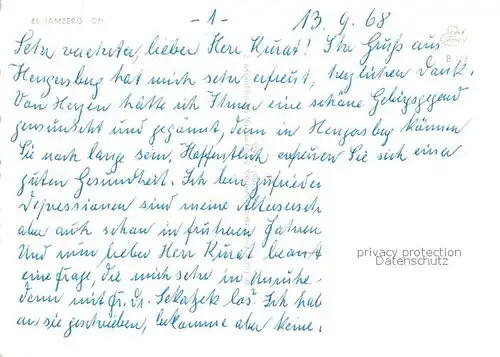 -1- 13.9.68
Sehr verehrter, lieber Herr Kurat! Ihr Gruß aus
Hengersberg hat mich sehr erfreut, herzlichen Dank.
Von Herzen hätte ich Ihnen eine schöne Gebirgsgegend
gewünscht und gegönnt, denn in Hengersberg können
Sie noch lange sein. Hoffentlich erfreuen Sie sich einer
guten Gesundheit. Ich bin zufrieden
Depressionen sind meine
aber auch schon in früheren Jahren
Und nun lieber Herr Kurat
eine Frage, die mich sehr in Unruhe
privacy protection
Datenschutz
denn mit Fr. los? Ich hab
an sie geschrieben, bekomme aber keine